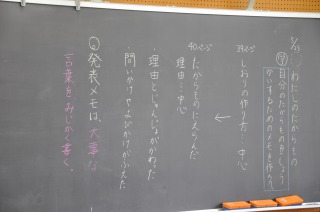 9/3
わたしのたからもの
自分のたからものをしょう
かいするためのメモを作ろう。
39ページ
しおりの作り方…中心
←
40ページ
たからものにえらんだ
理由…中心
・理由とじゅんじょがかわった
・問いかけやよびかけがふえた
発表メモは、大事な
言葉をみじかく書く。